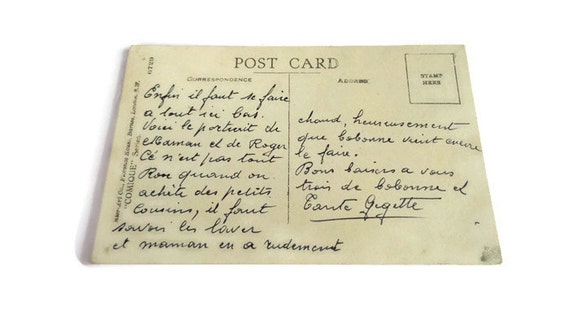 POST CARD
CORRESPONDENCE
ADDRESS
STAMP
HERE
Enfin il faut se faire
a tout ici bas.
Voici le portrait de
Maman et de Roger
Cé n'est pas tout
Ron quand on
achète des petits
cousins, il faut
savoir les laver
et maman en a rudement
chaud, heureusement
que bobonne vient encore
le faire.
Bons baisers a vous
trois de bobonne et
Tante Gigette
"COMIQUE" Series.
6729